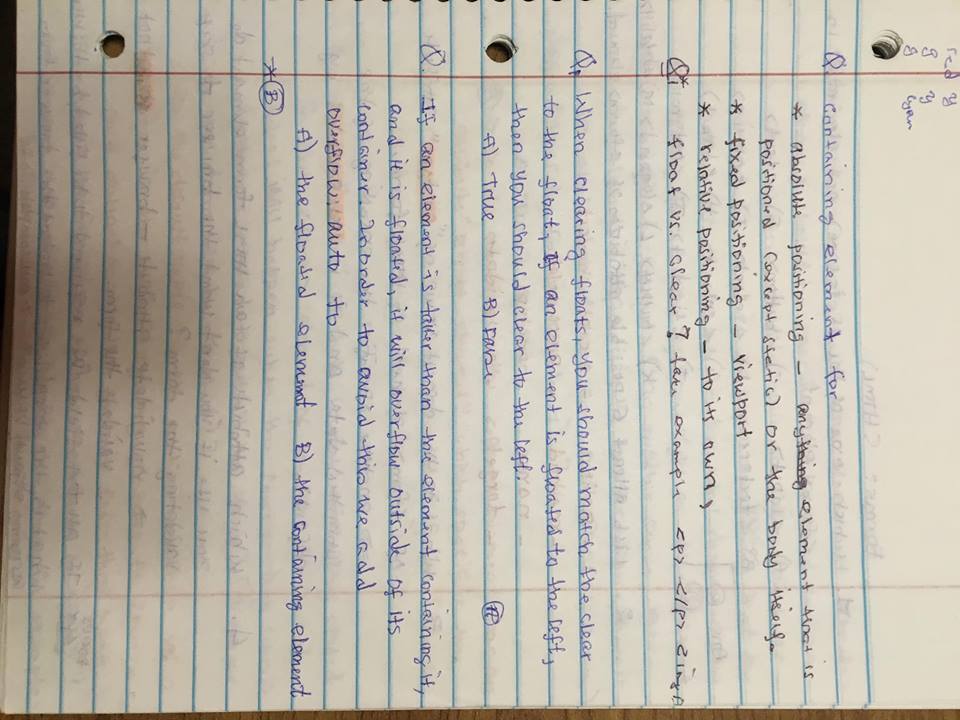 red
g
g
Cyan
Q. Containing element for
* absolute positioning - anything element that is
positioned (except static) or the body itself.
* fixed positioning - viewport
* relative positioning - to its own,
Q* float vs. clear? take example <p> </p> <img
Q. When clearing floats, you should match the clear
to the float, If an element is floated to the left,
then you should clear to the left.
A) True B) False
Q. If an element is taller than the element containing it,
and it is floated, it will overflow outside of its
container. In order to avoid this we add
overflow: auto to
A) the floated element B) the containing element
* (B)